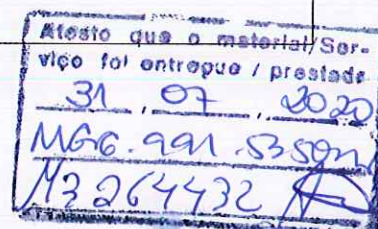 Atesto que o material/Ser-
viço foi entregue / prestado
31 , 07 , 2020
MG6.991.535
M3264432